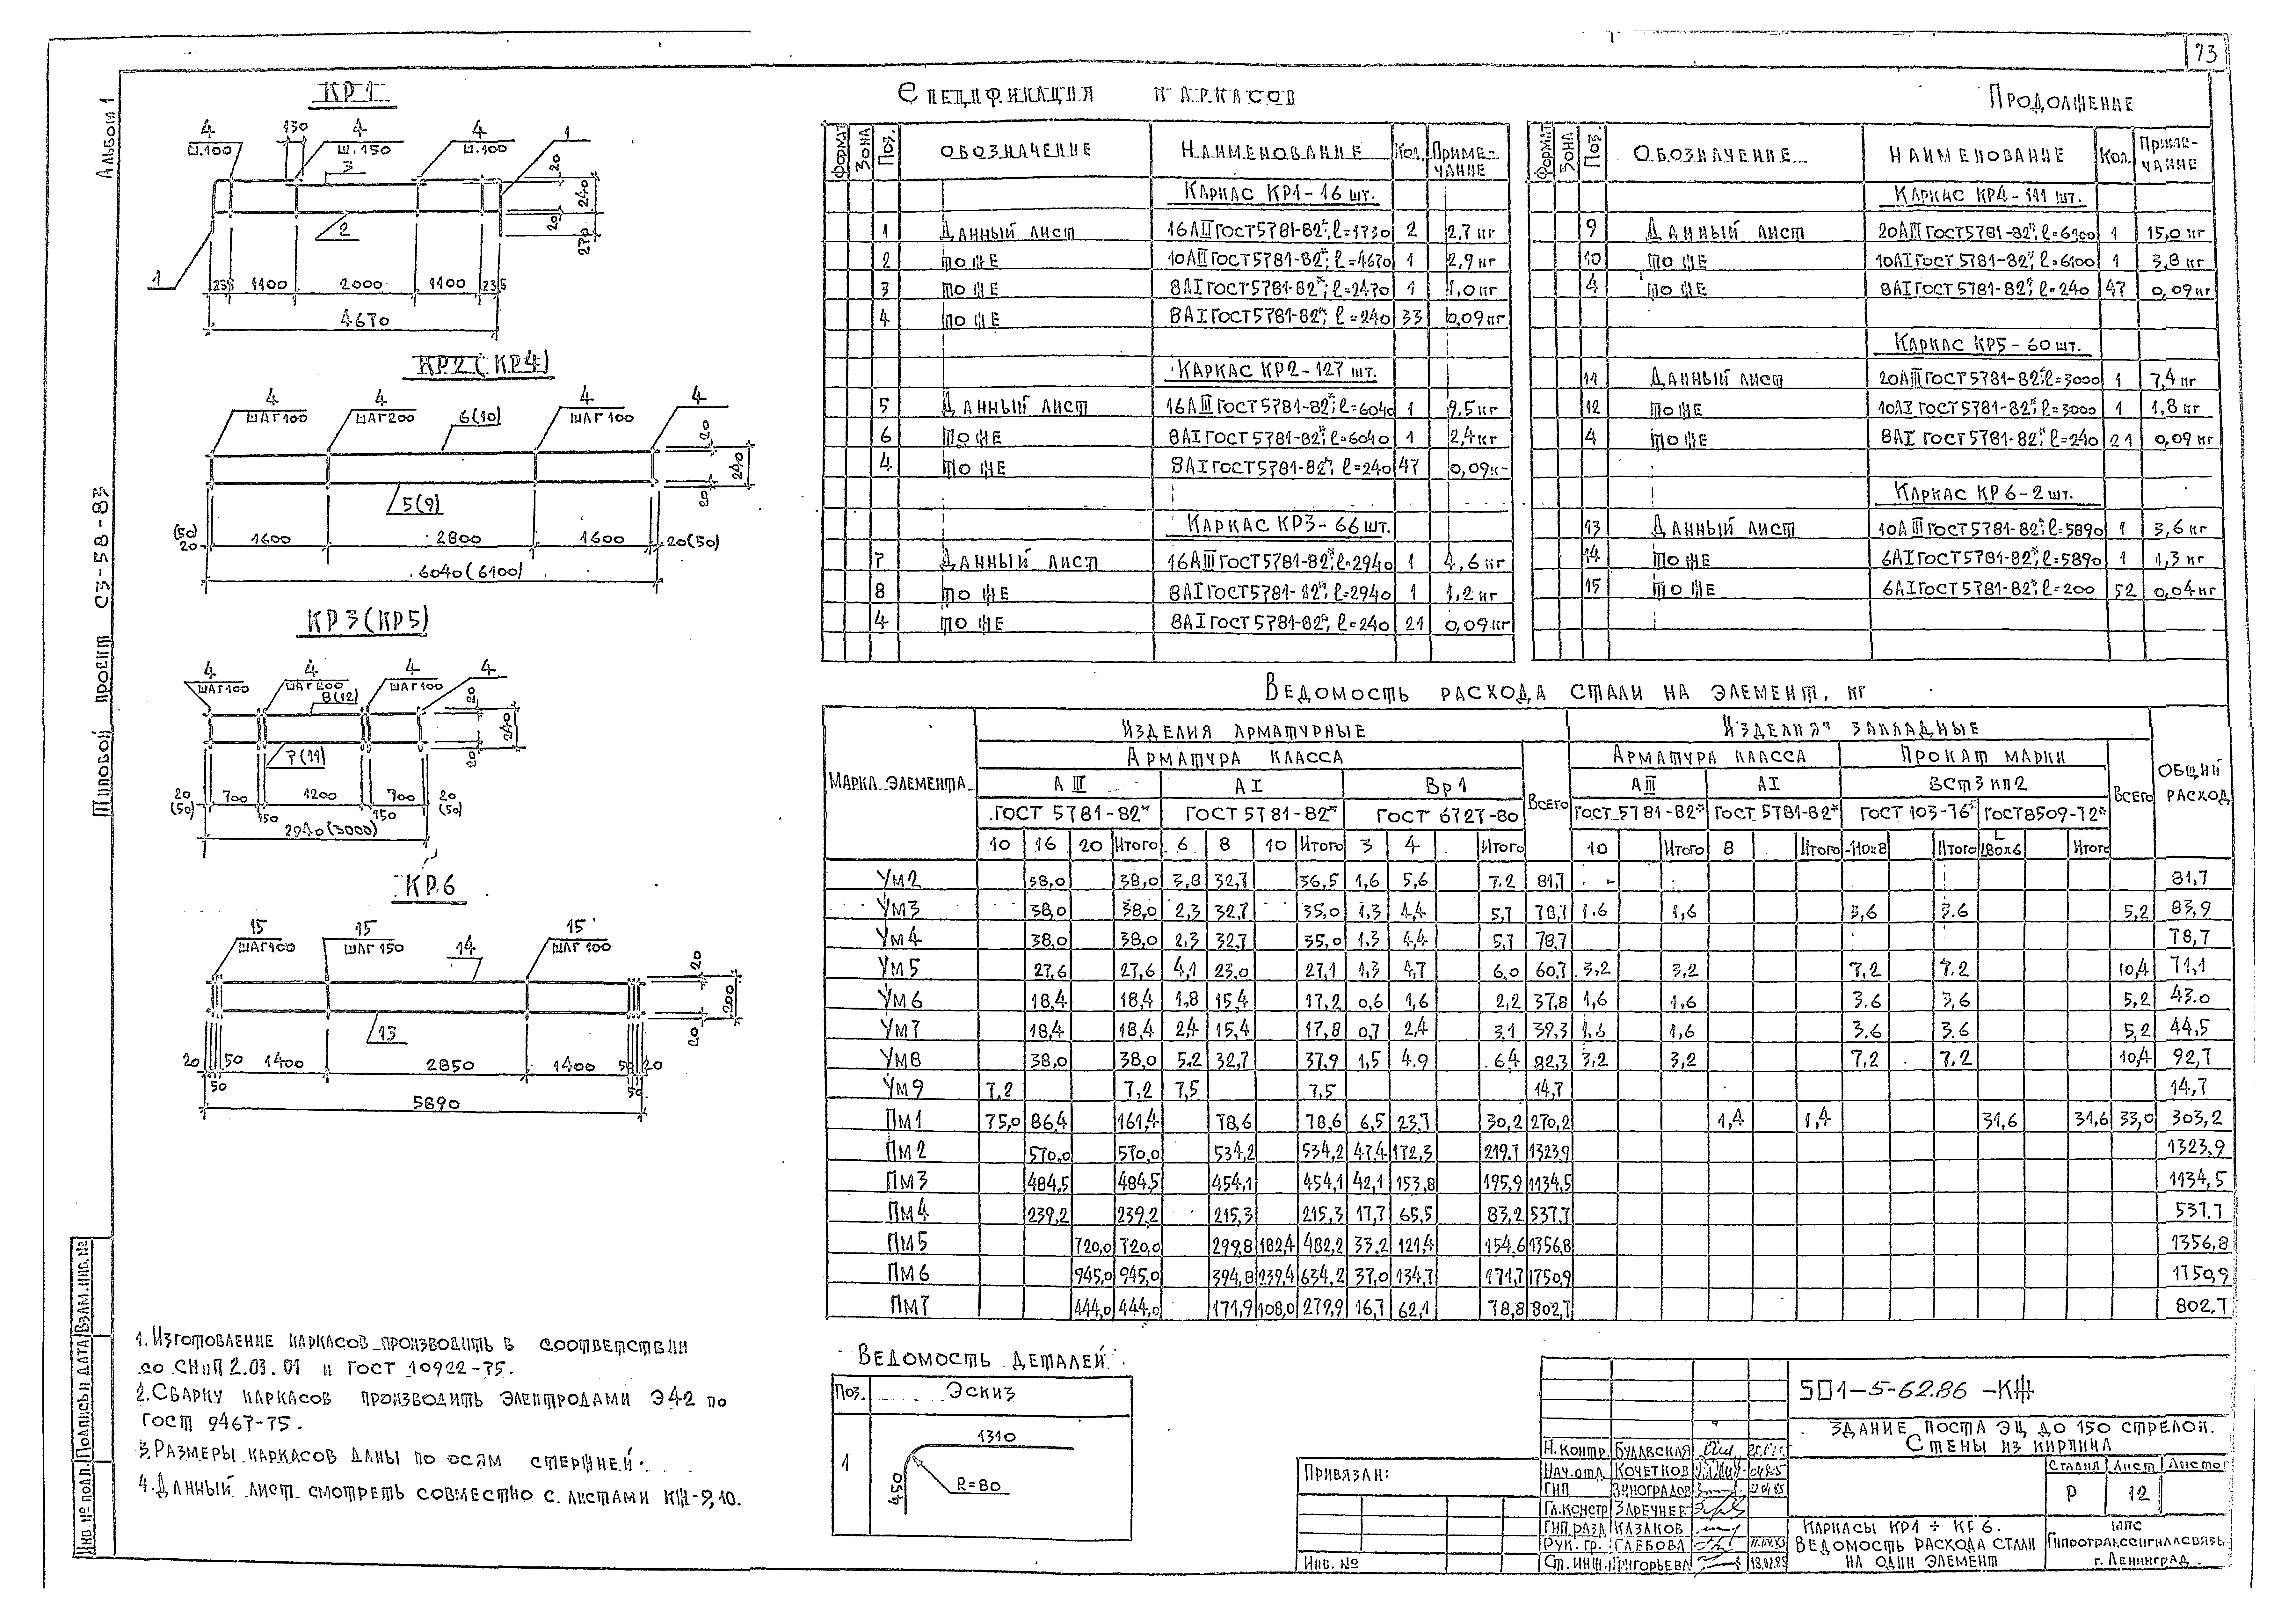 73
Альбом 1
Типовой проект СЗ-58-83
КР1
4 130 4 4 1
Ш.100 Ш.150 Ш.100
3
20 240 20 270
2
1
235 1100 2000 1100 235
4670
КР2 (КР4)
4 4 4 4
ШАГ100 ШАГ200 6(10) ШАГ100
20 240 20
5(9)
(50) 20 1600 2800 1600 20(50)
6040 (6100)
КР3 (КР5)
4 4 4 4
ШАГ100 ШАГ200 ШАГ100
8(12)
20 240 20
7(11)
20 (50) 700 150 1200 150 700 20 (50)
2940 (3000)
КР6
15 15 15
ШАГ100 ШАГ150 14 ШАГ100
20 200 20
13
20 50 50 1400 2850 1400 50 50 20
5890
1. Изготовление каркасов производить в соответствии
со СНиП 2.03.01 и ГОСТ 10922-75.
2. Сварку каркасов производить электродами Э42 по
ГОСТ 9467-75.
3. Размеры каркасов даны по осям стержней.
4. Данный лист смотреть совместно с листами КЖ-9,10.
Спецификация каркасов
Формат Зона Поз. Обозначение Наименование Кол. Примечание
Каркас КР1 - 16 шт.
1 Данный лист 16АIII ГОСТ 5781-82*; l=1730 2 2,7 кг
2 То же 10АIII ГОСТ 5781-82*; l=4670 1 2,9 кг
3 То же 8АI ГОСТ 5781-82*; l=2470 1 1,0 кг
4 То же 8АI ГОСТ 5781-82*; l=240 33 0,09 кг
Каркас КР2 - 127 шт.
5 Данный лист 16АIII ГОСТ 5781-82*; l=6040 1 9.5 кг
6 То же 8АI ГОСТ 5781-82*; l=6040 1 2,4 кг
4 То же 8АI ГОСТ 5781-82*; l=240 47 0,09 к
Каркас КР3 - 66 шт.
7 Данный лист 16АIII ГОСТ 5781-82*; l=2940 1 4,6 кг
8 То же 8АI ГОСТ 5781-82*; l=2940 1 1,2 кг
4 То же 8АI ГОСТ 5781-82*; l=240 21 0,09 кг
Продолжение
Формат Зона Поз. Обозначение Наименование Кол. Примечание
Каркас КР4 - 111 шт.
9 Данный лист 20АIII ГОСТ 5781-82*; l=6100 1 15,0 кг
10 То же 10АI ГОСТ 5781-82*; l=6100 1 3,8 кг
4 То же 8АI ГОСТ 5781-82*; l=240 47 0,09 кг
Каркас КР5 - 60 шт.
11 Данный лист 20АIII ГОСТ 5781-82*; l=3000 1 7,4 кг
12 То же 10АI ГОСТ 5781-82*; l=3000 1 1,8 кг
4 То же 8АI ГОСТ 5781-82*; l=240 21 0,09 кг
Каркас КР6 - 2 шт.
13 Данный лист 10АIII ГОСТ 5781-82*; l=5890 1 3,6 кг
14 То же 6АI ГОСТ 5781-82*; l=5890 1 1,3 кг
15 То же 6АI ГОСТ 5781-82*; l=200 52 0,04 кг
Ведомость расхода стали на элемент, кг
Марка элемента Изделия арматурные Изделия закладные Общий расход
Арматура класса Всего Арматура класса Прокат марки Всего
АIII АI Вр1 АIII АI ВСт3кп2
ГОСТ 5781-82* ГОСТ 5781-82* ГОСТ 6727-80 ГОСТ 5781-82* ГОСТ 5781-82* ГОСТ 103-76* ГОСТ 8509-72*
10 16 20 Итого 6 8 10 Итого 3 4 Итого 10 Итого 8 Итого -110х8 Итого L180х6 Итого
Ум2 38,0 38,0 3,8 32,7 36,5 1,6 5,6 7.2 81,7 81.7
Ум3 38,0 38,0 2,3 32,7 35,0 1,3 4,4 5,7 78,7 1.6 1,6 3,6 3.6 5,2 83,9
Ум4 38,0 38,0 2,3 32,7 35,0 1.3 4,4 5,7 78,7 78,7
Ум5 27,6 27,6 4,1 23.0 27,1 1,3 4,7 6,0 60,7 3,2 3,2 7,2 7.2 10,4 71,1
Ум6 18,4 18,4 1,8 15,4 17,2 0,6 1,6 2,2 37,8 1,6 1,6 3.6 3,6 5,2 43.0
Ум7 18,4 18,4 2,4 15,4 17,8 0,7 2,4 3,1 39,3 1,6 1,6 3.6 3.6 5,2 44,5
Ум8 38,0 38,0 5.2 32,7 37,9 1,5 4.9 6,4 82,3 3,2 3,2 7,2 7.2 10,4 92,7
Ум9 7,2 7,2 7,5 7,5 14,7 14,7
Пм1 75,0 86,4 161,4 78,6 78,6 6,5 23,7 30,2 270,2 1,4 1,4 31,6 31,6 33,0 303,2
Пм2 570,0 570,0 534,2 534,2 47,4 172,3 219,7 1323,9 1323,9
Пм3 484,5 484,5 454,1 454,1 42,1 153,8 195,9 1134,5 1134,5
Пм4 239,2 239,2 215,3 215,3 17,7 65,5 83,2 537,7 537,7
Пм5 720,0 720,0 299,8 182,4 482,2 33,2 121,4 154,6 1356,8 1356,8
Пм6 945,0 945,0 394,8 239,4 634,2 37,0 134,7 171,7 1750,9 1750,9
Пм7 444,0 444,0 171,9 108,0 279,9 16,7 62,1 78,8 802,7 802,7
Ведомость деталей
Поз. Эскиз
1 1310
450 R=80
Привязан:
Инв. №
Н.контр. Булавская
Нач.отд. Кочетков
ГИП Виноградов
Гл.констр Заречнев
ГИП разд Казаков
Рук. гр. Глебова
Ст.инж. Григорьева
501-5-62.86 -КЖ
Здание поста ЭЦ до 150 стрелок.
Стены из кирпича
Стадия Лист Листов
Р 12
Каркасы КР1 ÷ КР6.
Ведомость расхода стали
на один элемент
МПС
Гипротранссигналсвязь
г. Ленинград
Инв. № подл. Подпись и дата Взам. инв. №